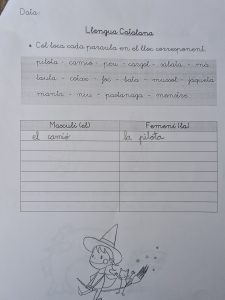 Data:
Llengua Catalana
• Col·loca cada paraula en el lloc corresponent.
pilota - camió - peu - cargol - sabata - mà
taula - cotxe - foc - bata - mussol - jaqueta
manta - niu - pastanaga - monstre.
Masculí (el) Femení (la)
el camió la pilota